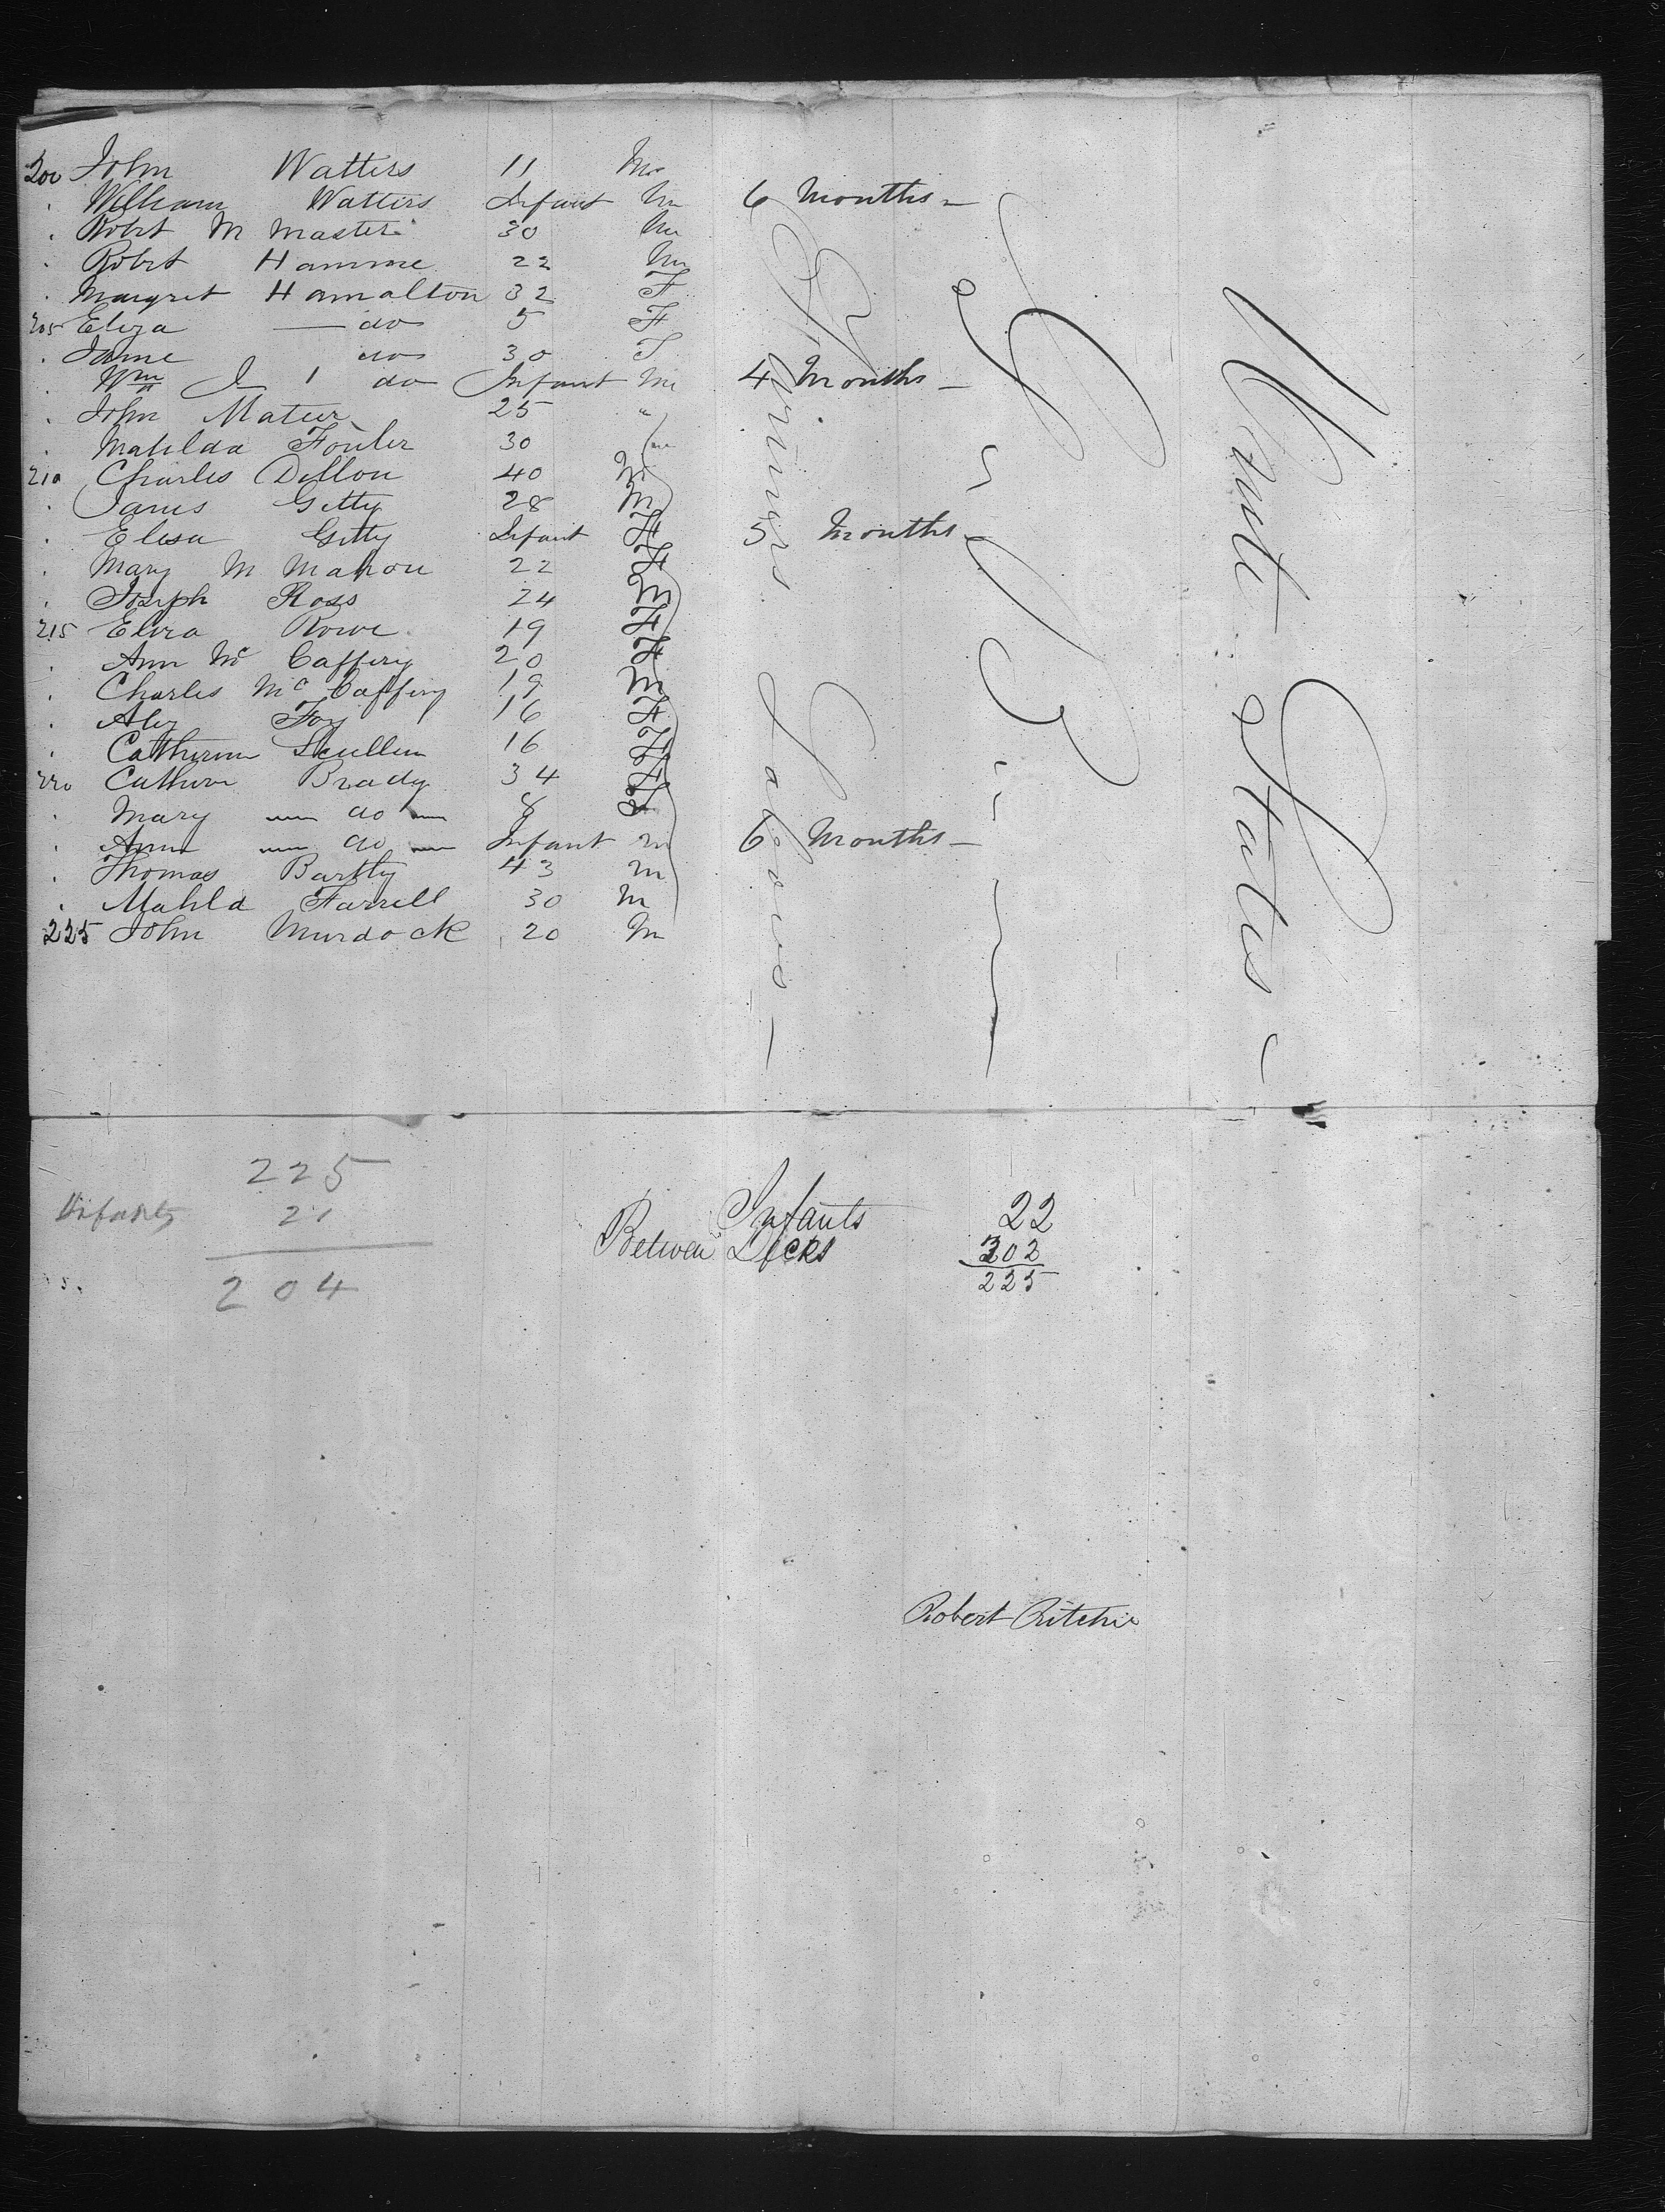 200 John Watters 11 M
William Watters Infant M 6 Months
Robt M Master 30 M
Robt Hamme 22 M
Margret Hamalton 32 F
205 Eliza do 5 F
Jane do 30 F
Wm J do Infant M 4 Months
John Mateer 25 "
Matilda Fouler 30
210 Charles Dillon 40 M
James Getty 28 M
Elisa Getty Infant F 5 Months
Mary M Mahon 22 F
Joseph Ross 24 M
215 Eliza Rowe 19 F
Ann Mc Caffery 20 F
Charles Mc Caffery 19 M
Alex Foy 16 F
Catherine Scullen 16 F
220 Cathrine Brady 34 F
Mary do 8 F
Ann do Infant M 6 Months
Thomas Bartly 43 M
Matilda Farrell 30 M
225 John Murdock 20 M
Farmers
Labours
G. B
Unit States
225
Infants 21
204
Infants 22
Between Decks 202
225
Robert Ritchie